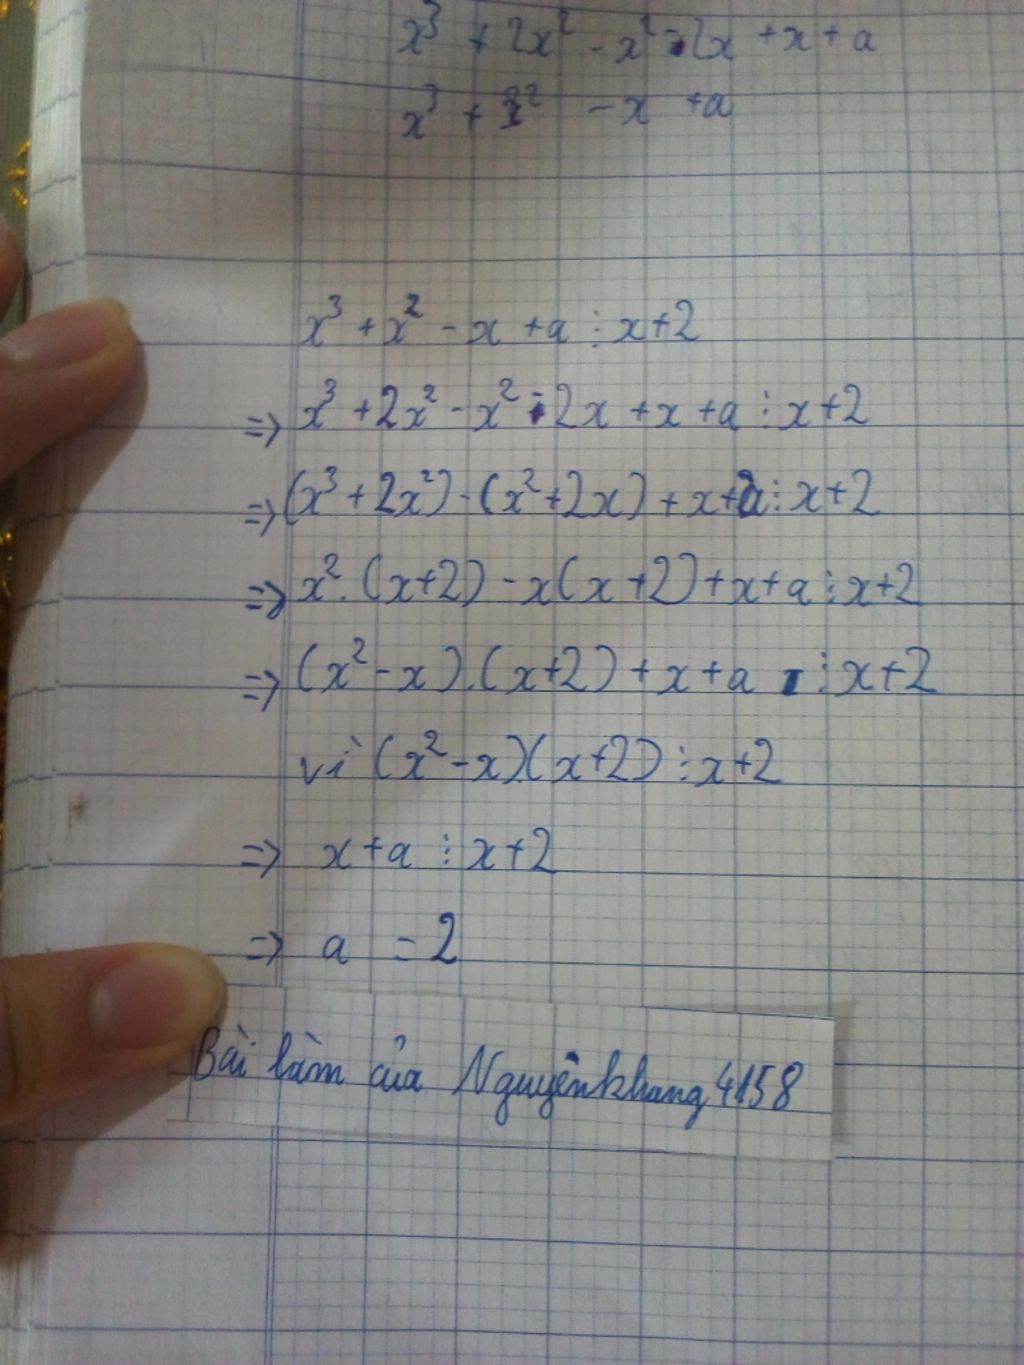 x³ + 2x² - x² - 2x + x + a
x³ + x² - x + a
x³ + x² - x + a ⋮ x+2
=> x³ + 2x² - x² - 2x + x + a ⋮ x+2
=> (x³ + 2x²) - (x² + 2x) + x + a ⋮ x+2
=> x². (x+2) - x(x+2) + x + a ⋮ x+2
=> (x² - x).(x+2) + x + a ⋮ x+2
vì (x² - x)(x+2) ⋮ x+2
=> x + a ⋮ x+2
=> a = 2
Bài làm của Nguyênkhang4158